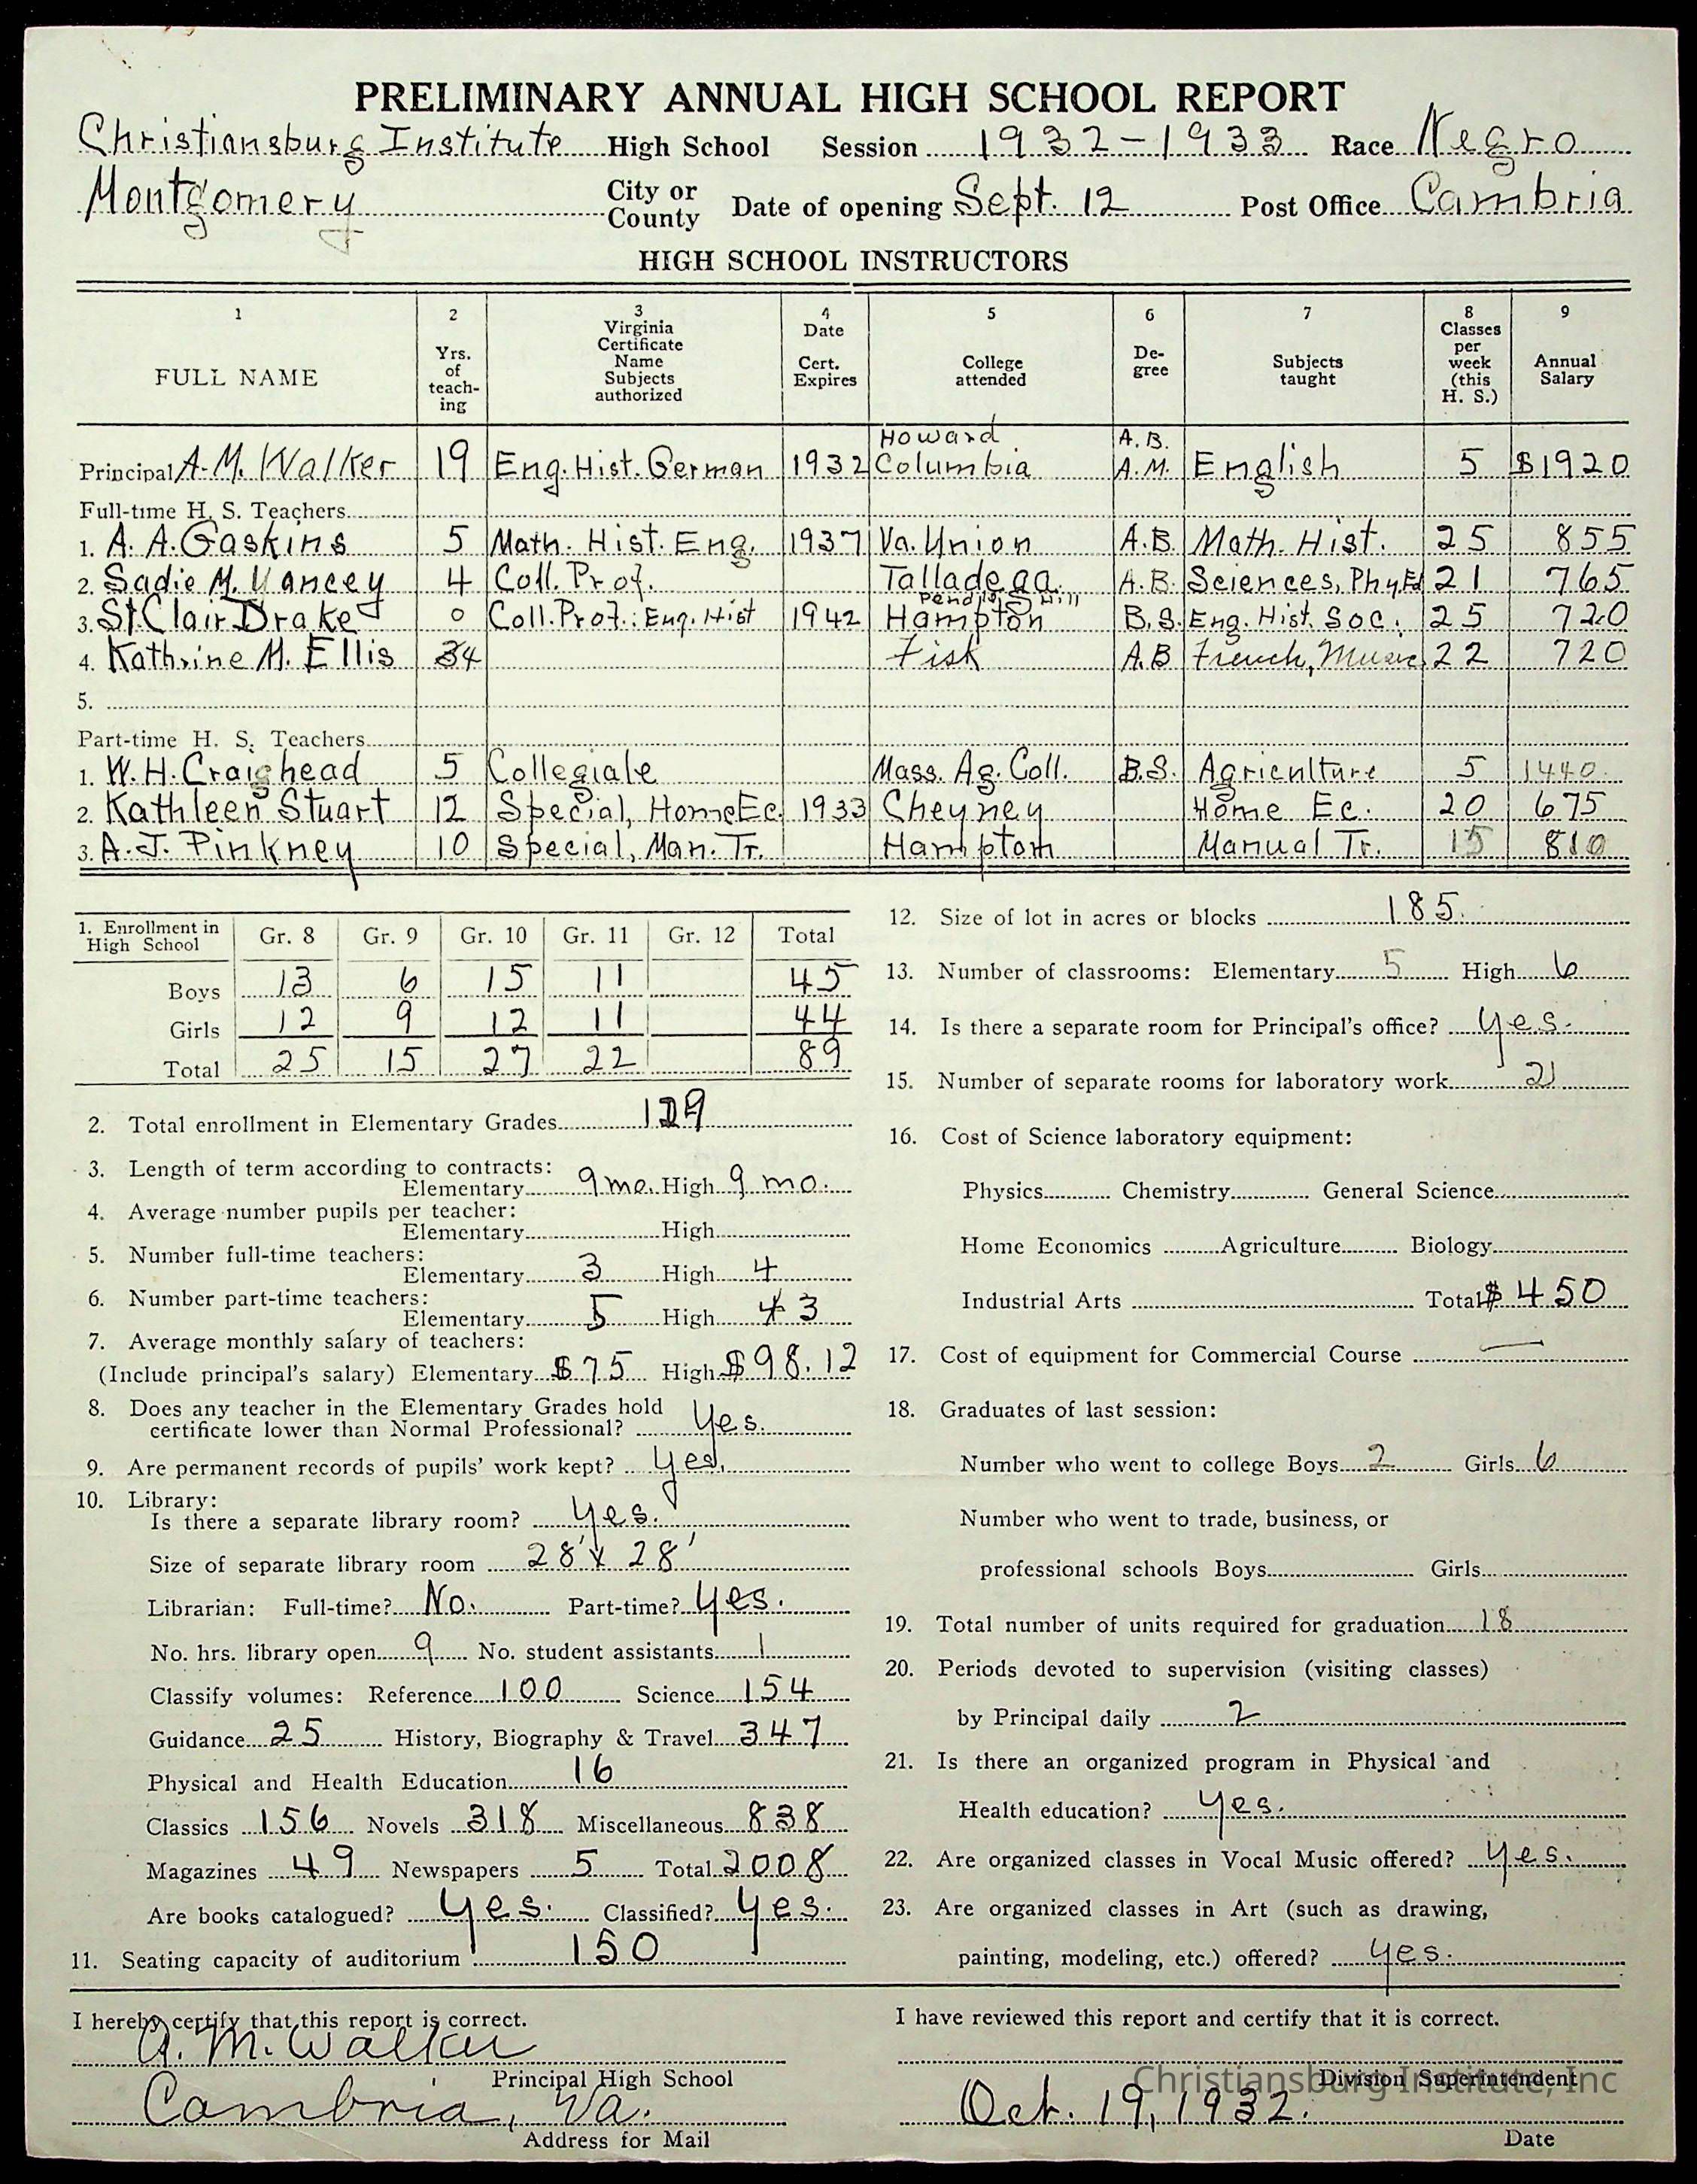 PRELIMINARY ANNUAL HIGH SCHOOL REPORT
Christiansburg Institute High School Session 1932-1933 Race Negro
Montgomery City or County Date of opening Sept. 12 Post Office Cambria
HIGH SCHOOL INSTRUCTORS
1 2 3 4 5 6 7 8 9
FULL NAME Yrs. of teach-ing Virginia Certificate Name Subjects authorized Date Cert. Expires College attended De-gree Subjects taught Classes per week (this H. S.) Annual Salary
Howard A.B.
Principal A. M. Walker 19 Eng. Hist. German 1932 Columbia A.M. English 5 $1920
Full-time H. S. Teachers
1. A. A. Gaskins 5 Math. Hist. Eng. 1937 Va. Union A.B. Math. Hist. 25 855
2. Sadie M. Yancey 4 Coll. Prof. Talladega A.B. Sciences, Phy Ed 21 765
3. St. Clair Drake 0 Coll. Prof.: Eng. Hist 1942 Hampton B.S. Eng. Hist. Soc. 25 720
4. Kathrine M. Ellis 4 Fisk A.B French, Music 22 720
5.
Part-time H. S. Teachers
1. W. H. Craighead 5 Collegiate Mass. Ag. Coll. B.S. Agriculture 5 1440
2. Kathleen Stuart 12 Special, Home Ec. 1933 Cheyney Home Ec. 20 675
3. A. J. Pinkney 10 Special, Man. Tr. Hampton Manual Tr. 15 810
1. Enrollment in High School Gr. 8 Gr. 9 Gr. 10 Gr. 11 Gr. 12 Total
Boys 13 6 15 11 45
Girls 12 9 12 11 44
Total 25 15 27 22 89
2. Total enrollment in Elementary Grades 129
3. Length of term according to contracts:
Elementary 9 mo. High 9 mo.
4. Average number pupils per teacher:
Elementary High
5. Number full-time teachers:
Elementary 3 High 4
6. Number part-time teachers:
Elementary 5 High 4 3
7. Average monthly salary of teachers:
(Include principal's salary) Elementary $75 High $98.12
8. Does any teacher in the Elementary Grades hold
certificate lower than Normal Professional? Yes.
9. Are permanent records of pupils' work kept? Yes.
10. Library:
Is there a separate library room? Yes.
Size of separate library room 28' x 28'
Librarian: Full-time? No. Part-time? Yes.
No. hrs. library open 9 No. student assistants 1
Classify volumes: Reference 100 Science 154
Guidance 25 History, Biography & Travel 347
Physical and Health Education 16
Classics 156 Novels 318 Miscellaneous 838
Magazines 49 Newspapers 5 Total 2008
Are books catalogued? Yes. Classified? Yes.
11. Seating capacity of auditorium 150
12. Size of lot in acres or blocks 185.
13. Number of classrooms: Elementary 5 High 6
14. Is there a separate room for Principal's office? Yes.
15. Number of separate rooms for laboratory work
16. Cost of Science laboratory equipment:
Physics Chemistry General Science
Home Economics Agriculture Biology
Industrial Arts Total $450
17. Cost of equipment for Commercial Course —
18. Graduates of last session:
Number who went to college Boys 2 Girls 6
Number who went to trade, business, or
professional schools Boys Girls
19. Total number of units required for graduation 18
20. Periods devoted to supervision (visiting classes)
by Principal daily 2
21. Is there an organized program in Physical and
Health education? Yes.
22. Are organized classes in Vocal Music offered? Yes.
23. Are organized classes in Art (such as drawing,
painting, modeling, etc.) offered? Yes.
I hereby certify that this report is correct.
A. M. Walker
Principal High School
Cambria, Va.
Address for Mail
I have reviewed this report and certify that it is correct.
Division Superintendent
Christiansburg Institute, Inc
Oct. 19, 1932.
Date